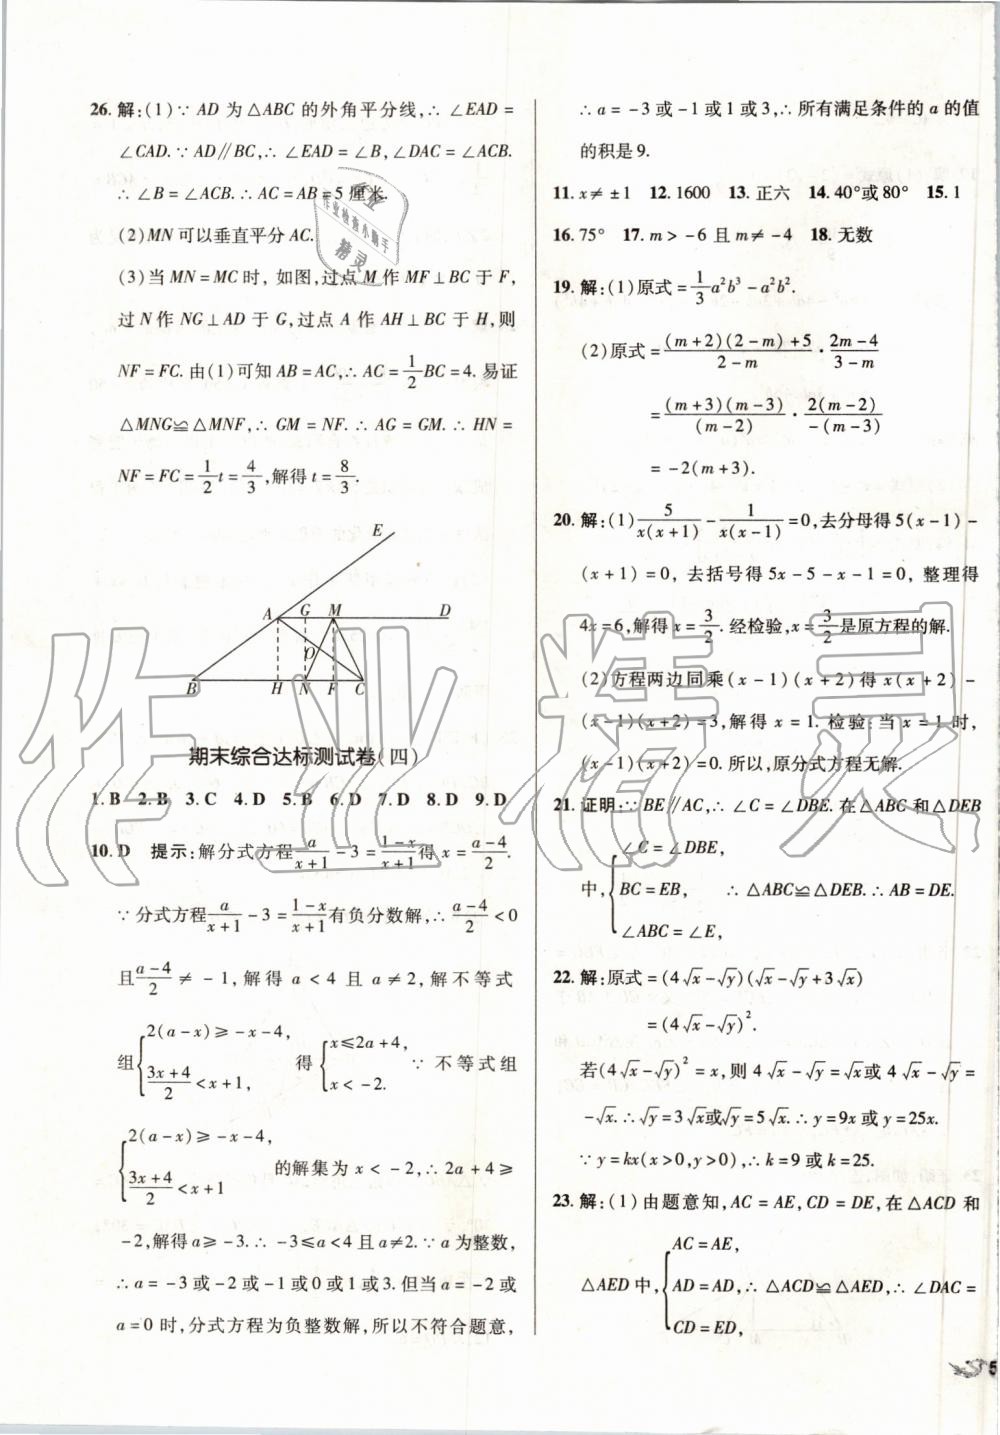 26. 解:(1)∵ AD 为△ABC 的外角平分线,∴ ∠EAD =
∠CAD. ∵ AD∥BC,∴ ∠EAD = ∠B,∠DAC = ∠ACB.
∴ ∠B = ∠ACB. ∴ AC = AB = 5 厘米.
(2)MN 可以垂直平分 AC.
(3)当 MN = MC 时, 如图,过点 M 作 MF⊥BC 于 F,
过 N 作 NG⊥AD 于 G,过点 A 作 AH⊥BC 于 H,则
NF = FC. 由(1)可知 AB = AC,∴ AC = 1/2 BC = 4. 易证
△MNG≌△MNF,∴ GM = NF. ∴ AG = GM. ∴ HN =
NF = FC = 1/2 t = 4/3,解得 t = 8/3.
E
A G M D
O
B H N F C
期末综合达标测试卷(四)
1. B 2. B 3. C 4. D 5. B 6. D 7. D 8. D 9. D
10. D 提示:解分式方程 a/(x+1) - 3 = (1-x)/(x+1) 得 x = (a-4)/2.
∵ 分式方程 a/(x+1) - 3 = (1-x)/(x+1) 有负分数解,∴ (a-4)/2 < 0
且 (a-4)/2 ≠ -1,解得 a < 4 且 a ≠ 2,解不等式
组 { 2(a-x) ≥ -x-4, (3x+4)/2 < x+1, 得 { x ≤ 2a+4, x < -2. ∵ 不等式组
{ 2(a-x) ≥ -x-4, (3x+4)/2 < x+1 的解集为 x < -2,∴ 2a+4 ≥
-2,解得 a ≥ -3. ∴ -3 ≤ a < 4 且 a ≠ 2. ∵ a 为整数,
∴ a = -3 或 -2 或 -1 或 0 或 1 或 3. 但当 a = -2 或
a = 0 时,分式方程为负整数解,所以不符合题意,
∴ a = -3 或 -1 或 1 或 3,∴ 所有满足条件的 a 的值
的积是 9.
11. x ≠ ±1 12. 1600 13. 正六 14. 40°或 80° 15. 1
16. 75° 17. m > -6 且 m ≠ -4 18. 无数
19. 解:(1)原式 = 1/3 a²b³ - a²b².
(2)原式 = ((m+2)(2-m)+5)/(2-m) · (2m-4)/(3-m)
= ((m+3)(m-3))/(m-2) · 2(m-2)/(-(m-3))
= -2(m+3).
20. 解:(1) 5/(x(x+1)) - 1/(x(x-1)) = 0,去分母得 5(x-1) -
(x+1) = 0, 去括号得 5x-5-x-1 = 0, 整理得
4x = 6,解得 x = 3/2. 经检验,x = 3/2 是原方程的解.
(2)方程两边同乘(x-1)(x+2)得 x(x+2) -
(x-1)(x+2) = 3,解得 x = 1. 检验:当 x = 1 时,
(x-1)(x+2) = 0. 所以,原分式方程无解.
21. 证明:∵ BE∥AC,∴ ∠C = ∠DBE. 在△ABC 和△DEB
中, { ∠C = ∠DBE, BC = EB, ∠ABC = ∠E, ∴ △ABC≌△DEB. ∴ AB = DE.
22. 解:原式 = (4√x - √y)(√x - √y + 3√x)
= (4√x - √y)².
若(4√x - √y)² = x,则 4√x - √y = √x 或 4√x - √y =
-√x. ∴ √y = 3√x 或 √y = 5√x. ∴ y = 9x 或 y = 25x.
∵ y = kx(x>0,y>0),∴ k = 9 或 k = 25.
23. 解:(1)由题意知,AC = AE,CD = DE,在△ACD 和
△AED 中, { AC = AE, AD = AD, CD = ED, ∴ △ACD≌△AED,∴ ∠DAC =
5
作业精灵
作业检查小助手
精灵